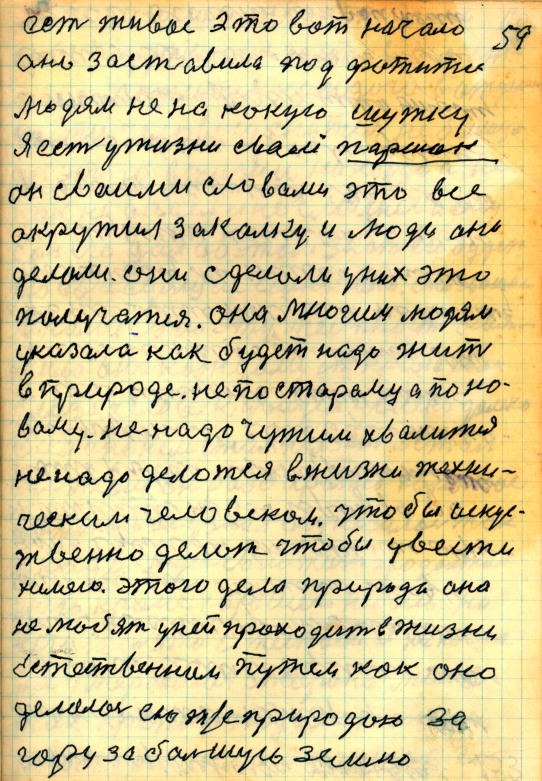 ест живое это вот начало 59
онь заставила под
людям не на кокую шутку
Я ест у жизни сваей Паршек
он сваими словами это все
акружил закалку. и люди оны
делали. они сделали у них это
получатся. она многим людям
указала как будет надо жить
в природе. не по старому а по но-
ваму. не надо чужим хвалится
не надо делатся в жизни техни-
ческим человеком. чтобы искус-
твенно делат чтобы цвести
этого дела природа она
не любят у ней проходит в жизни
естественным путем как оно
делалос природою за
гору за бальшую землю